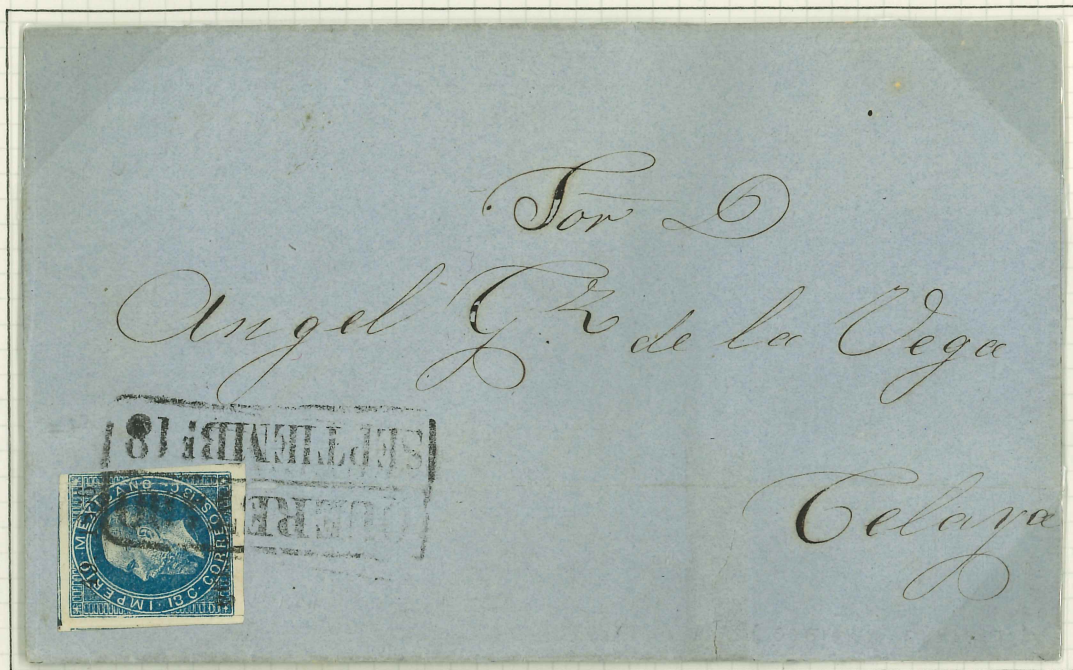 Sor D
Angel G.z de la Vega
Celaya
SEPTIEMBE 18
QUERE
IMPERIO MEXICANO 13 C. CORREOS 13 C.